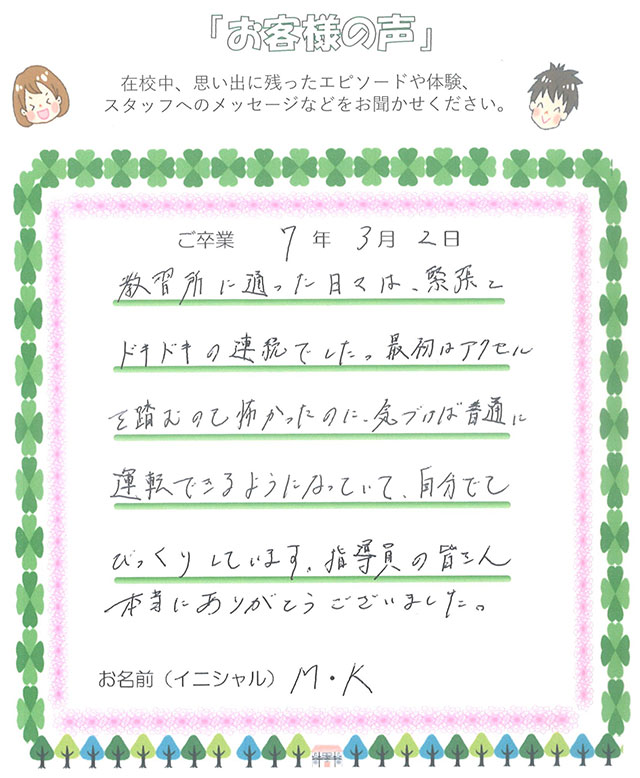 「お客様の声」
在校中、思い出に残ったエピソードや体験、
スタッフへのメッセージなどをお聞かせください。
ご卒業 7年 3月 2日
教習所に通った日々は、緊張と
ドキドキの連続でした。最初はアクセル
を踏むのも怖かったのに、気づけば普通に
運転できるようになっていて、自分でも
びっくりしています。指導員の皆さん
本当にありがとうございました。
お名前（イニシャル） M・K